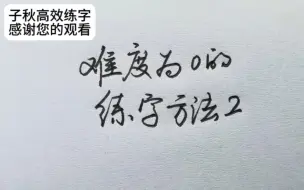 子秋高效练字
感谢您的观看
难度为0的
练字方法2